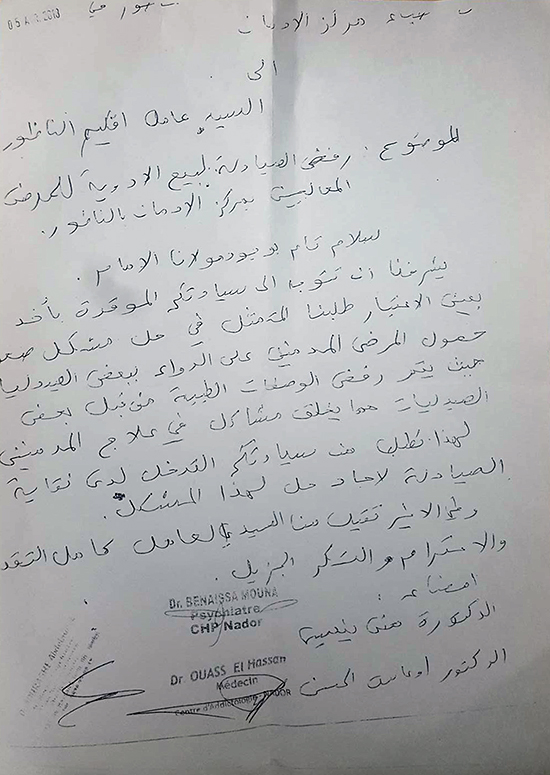 05 A 2018 ناظور في
أطباء مركز الادمان
الى
السيد عامل اقليم الناظور
الموضوع: رفض الصيادلة لبيع الادوية للمرضى
المعالجين بمركز الادمان بالناظور.
سلام تام بوجود مولانا الامام.
يشرفنا ان نتوجه الى سيادتكم الموقرة بأخد
بعين الاعتبار طلبنا المتمثل في حل مشكل
حصول المرضى المدمنين على الدواء ببعض الصيدليات
حيث يتم رفض الوصفات الطبية من قبل بعض
الصيدليات مما يخلق مشاكل في علاج المدمنين
لهذا نطلب من سيادتكم التدخل لدى نقابة
الصيادلة لاجاد حل لهذا المشكل.
وفي الاخير تقبل منا السيد العامل كامل التقد
والاحترام و الشكر الجزيل.
امضاء:
Dr. BENAISSA MOUNA
Psychiatre
CHP Nador
الدكتورة منى بنعيسى
Dr. OUASS El Hassan
Médecin
Centre d'Addictologie NADOR
الدكتور اوعاس الحسن